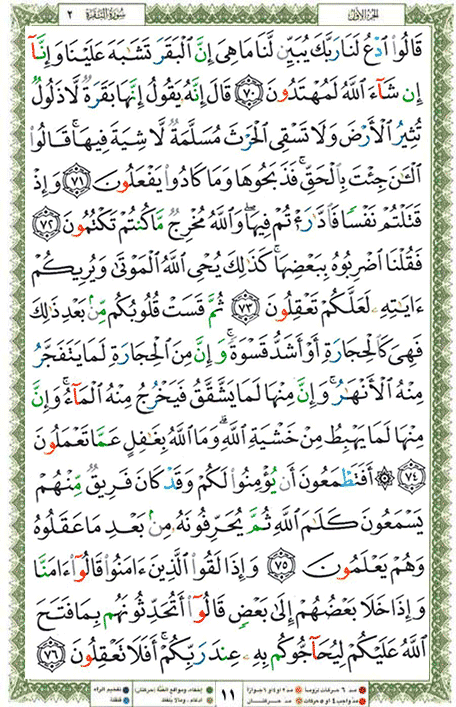 الجزء الأول
سورة البقرة ٢
قَالُوا۟ ٱدْعُ لَنَا رَبَّكَ يُبَيِّن لَّنَا مَا هِىَ إِنَّ ٱلْبَقَرَ تَشَـٰبَهَ عَلَيْنَا وَإِنَّآ
إِن شَآءَ ٱللَّهُ لَمُهْتَدُونَ ٧٠ قَالَ إِنَّهُۥ يَقُولُ إِنَّهَا بَقَرَةٌ لَّا ذَلُولٌ
تُثِيرُ ٱلْأَرْضَ وَلَا تَسْقِى ٱلْحَرْثَ مُسَلَّمَةٌ لَّا شِيَةَ فِيهَا ۚ قَالُوا۟
ٱلْـَٔـٰنَ جِئْتَ بِٱلْحَقِّ ۚ فَذَبَحُوهَا وَمَا كَادُوا۟ يَفْعَلُونَ ٧١ وَإِذْ
قَتَلْتُمْ نَفْسًا فَٱدَّٰرَْٰٔتُمْ فِيهَا ۖ وَٱللَّهُ مُخْرِجٌ مَّا كُنتُمْ تَكْتُمُونَ ٧٢
فَقُلْنَا ٱضْرِبُوهُ بِبَعْضِهَا ۚ كَذَٰلِكَ يُحْىِ ٱللَّهُ ٱلْمَوْتَىٰ وَيُرِيكُمْ
ءَايَـٰتِهِۦ لَعَلَّكُمْ تَعْقِلُونَ ٧٣ ثُمَّ قَسَتْ قُلُوبُكُم مِّنۢ بَعْدِ ذَٰلِكَ
فَهِىَ كَٱلْحِجَارَةِ أَوْ أَشَدُّ قَسْوَةً ۚ وَإِنَّ مِنَ ٱلْحِجَارَةِ لَمَا يَتَفَجَّرُ
مِنْهُ ٱلْأَنْهَـٰرُ ۚ وَإِنَّ مِنْهَا لَمَا يَشَّقَّقُ فَيَخْرُجُ مِنْهُ ٱلْمَآءُ ۚ وَإِنَّ
مِنْهَا لَمَا يَهْبِطُ مِنْ خَشْيَةِ ٱللَّهِ ۗ وَمَا ٱللَّهُ بِغَـٰفِلٍ عَمَّا تَعْمَلُونَ
٧٤ ۞ أَفَتَطْمَعُونَ أَن يُؤْمِنُوا۟ لَكُمْ وَقَدْ كَانَ فَرِيقٌ مِّنْهُمْ
يَسْمَعُونَ كَلَـٰمَ ٱللَّهِ ثُمَّ يُحَرِّفُونَهُۥ مِنۢ بَعْدِ مَا عَقَلُوهُ
وَهُمْ يَعْلَمُونَ ٧٥ وَإِذَا لَقُوا۟ ٱلَّذِينَ ءَامَنُوا۟ قَالُوٓا۟ ءَامَنَّا
وَإِذَا خَلَا بَعْضُهُمْ إِلَىٰ بَعْضٍ قَالُوٓا۟ أَتُحَدِّثُونَهُم بِمَا فَتَحَ
ٱللَّهُ عَلَيْكُمْ لِيُحَآجُّوكُم بِهِۦ عِندَ رَبِّكُمْ ۚ أَفَلَا تَعْقِلُونَ ٧٦
مد ٦ حركات لزوماً مد ٢ او ٤ او ٦ جوازاً
مد واجب ٤ او ٥ حركات مد حركتان
١١
إخفاء، ومواقع الغنة (حركتان) تفخيم الراء
ادغام، وما لا يلفظ قلقلة